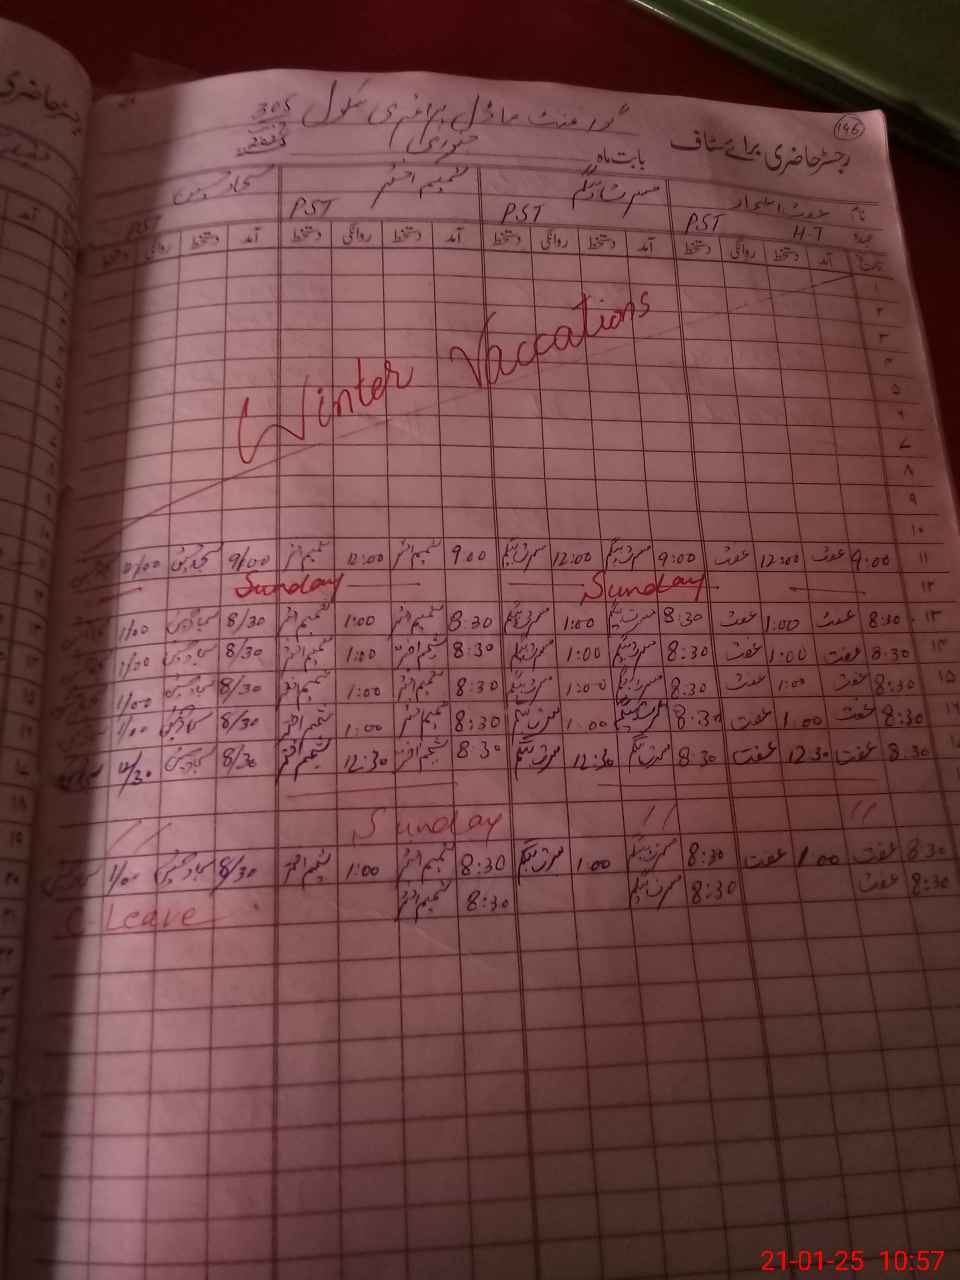 ۱۴۶
رجسٹر حاضری برائے سٹاف گورنمنٹ ماڈل پرائمری سکول 305
بابت ماہ جنوری
نام عفت مسرت بیگم شمیم اختر سجاد حسین
عہدہ H-T PST PST PST PST
آمد دستخط روانگی دستخط آمد دستخط روانگی دستخط آمد دستخط روانگی دستخط آمد دستخط روانگی دستخط
۱
۲
۳
۴
Winter Vaccations
۵
۶
۷
۸
۹
۱۰
۱۱ 9:00 عفت 12:00 عفت 9:00 مسرت بیگم 12:00 مسرت بیگم 9:00 شمیم اختر 12:00 شمیم اختر 9/00 سجاد حسین
۱۲ Sunday Sunday
۱۳ 8:30 عفت 1:00 عفت 8:30 مسرت بیگم 1:00 مسرت بیگم 8:30 شمیم اختر 1:00 شمیم اختر 8/30 سجاد حسین 1/00
۱۴ 8:30 عفت 1:00 عفت 8:30 مسرت بیگم 1:00 مسرت بیگم 8:30 شمیم اختر 1:00 شمیم اختر 8/30 سجاد حسین 1/00
۱۵ 8:30 عفت 1:00 عفت 8:30 مسرت بیگم 1:00 مسرت بیگم 8:30 شمیم اختر 1:00 شمیم اختر 8/30 سجاد حسین 1/00
8:30 عفت 1:00 عفت 8:30 مسرت بیگم 1:00 مسرت بیگم 8:30 شمیم اختر 1:00 شمیم اختر 8/30 سجاد حسین 1/00
8:30 عفت 12:30 عفت 8:30 مسرت بیگم 12:30 مسرت بیگم 8:30 شمیم اختر 12:30 شمیم اختر 8/30 سجاد حسین
// // Sunday //
8:30 عفت 1:00 عفت 8:30 مسرت بیگم 1:00 مسرت بیگم 8:30 شمیم اختر 1:00 شمیم اختر 8/30 سجاد حسین 1/00
8:30 عفت 8:30 مسرت بیگم 8:30 شمیم اختر C. Leave
21-01-25 10:57